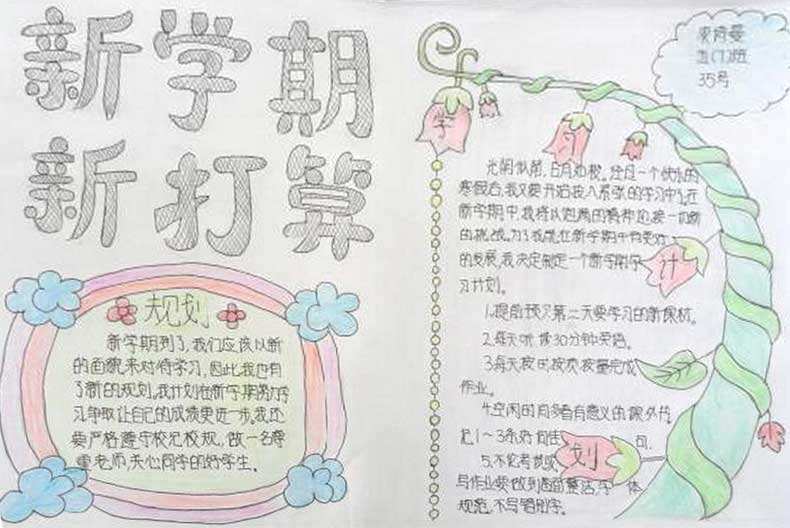 新学期
新打算
规划
新学期到了,我们应该以新
的面貌来对待学习,因此我也有
了新的规划。我计划在新学期努力学
习争取让自己的成绩更进一步。我还
要严格遵守校纪校规,做一名尊
重老师,关心同学的好学生。
五(7)班
35号
学
习
计
划
光阴似箭,日月如梭。经过一个快乐的
寒假后,我又要开始投入紧张的学习中了。在
新学期中,我将以饱满的精神迎接一切新
的挑战。为了我能在新学期中有更好
的发展,我决定制定一个新学期学
习计划。
1.提前预习第二天要学习的新课材。
2.每天听读30分钟英语。
3.每天按时按质按量完成
作业。
4.空闲时间多看有意义的课外书
记1~3条好词佳句。
5.不论考试或
写作业要做到卷面整洁,字体
规范,不写错别字。